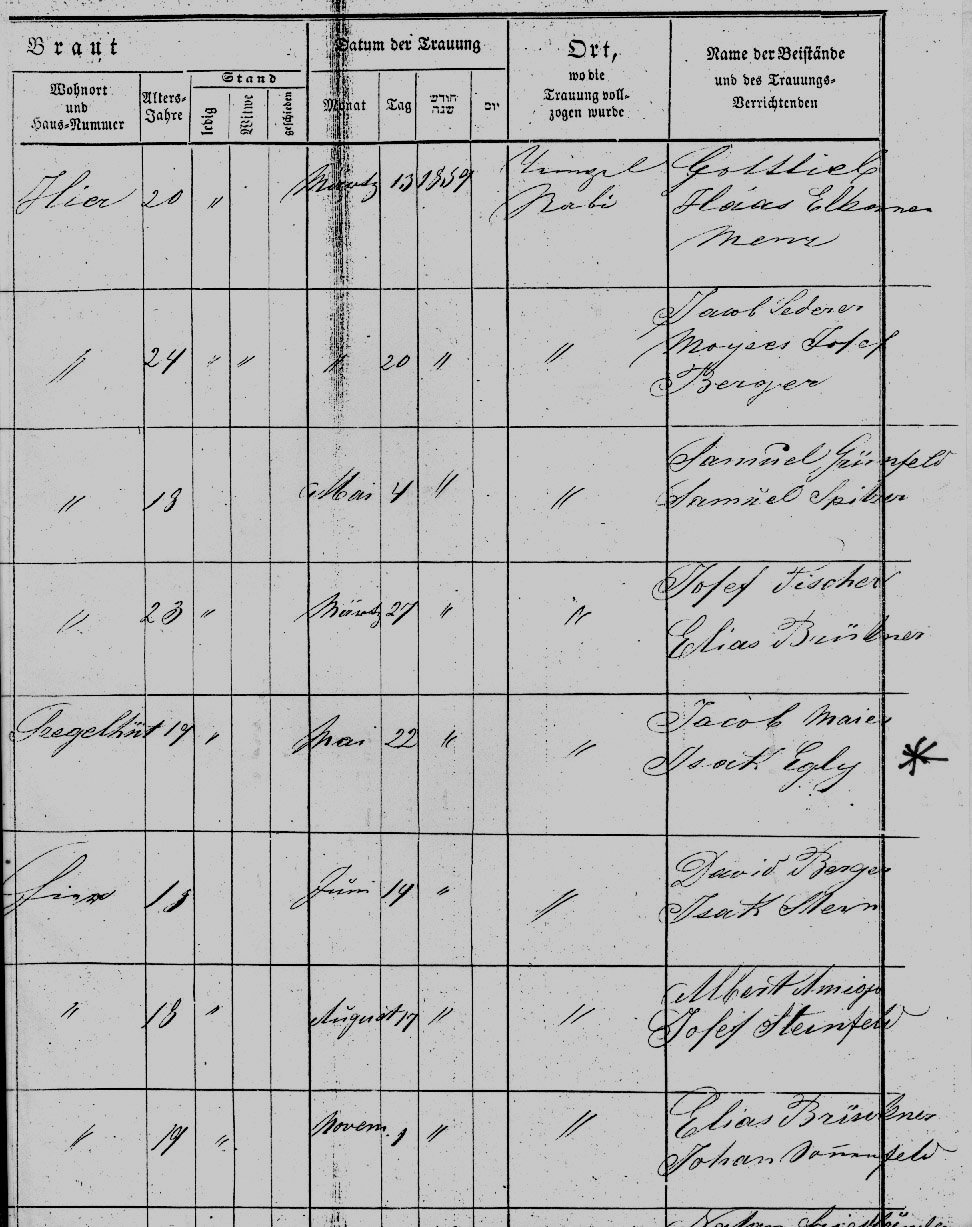 Braut
Datum der Trauung
Ort,
wo die
Trauung voll-
zogen wurde
Name der Beistände
und des Trauungs-
Verrichtenden
Wohnort
und
Haus-Nummer
Alters-
Jahre
Stand
ledig
Witwe
geschieden
Monat
Tag
חודש
שנה
יום
Hier 20 " März 13 1859 Rabi Gottlieb
Haas
" 24 " " " 20 " " Jacob Lederer
Moyses Josef
Berger
" Mai 4 " " Samuel Grünfeld
Samuel Spitzer
" 23 " März 27 " " Josef Fischer
Elias Brükner
19 " Mai 22 " " Jacob Maier
Isak Egly
Hier 18 Juni 14 " " David Berger
Isak Stern
" 18 " August 17 " " Albert
Josef Steinfeld
" 19 " Novem. 1 " " Elias Brükner
Johan Sonnenfeld
Natan